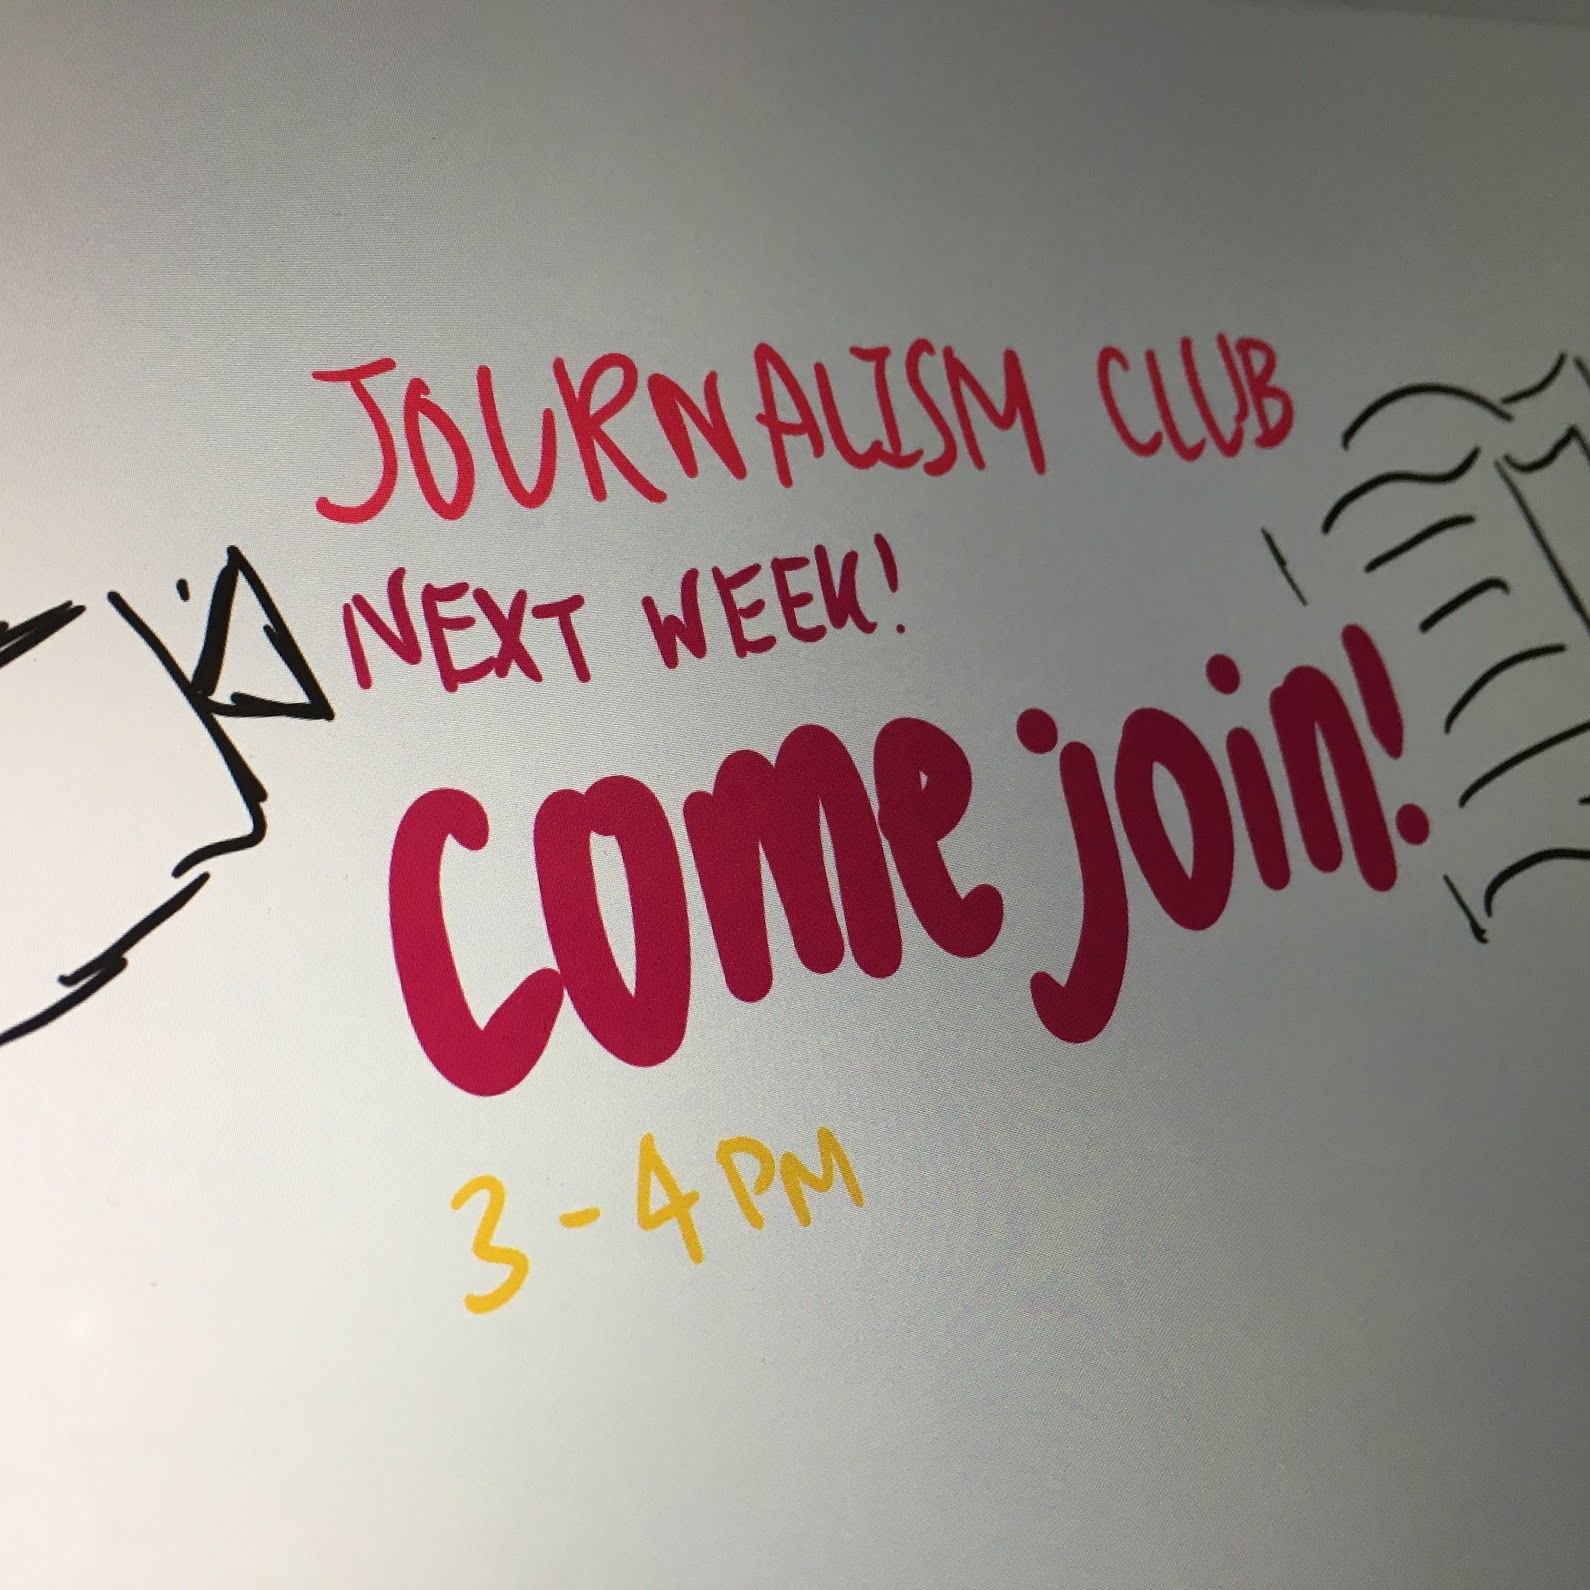 JOURNALISM CLUB
NEXT WEEK!
come join!
3-4PM